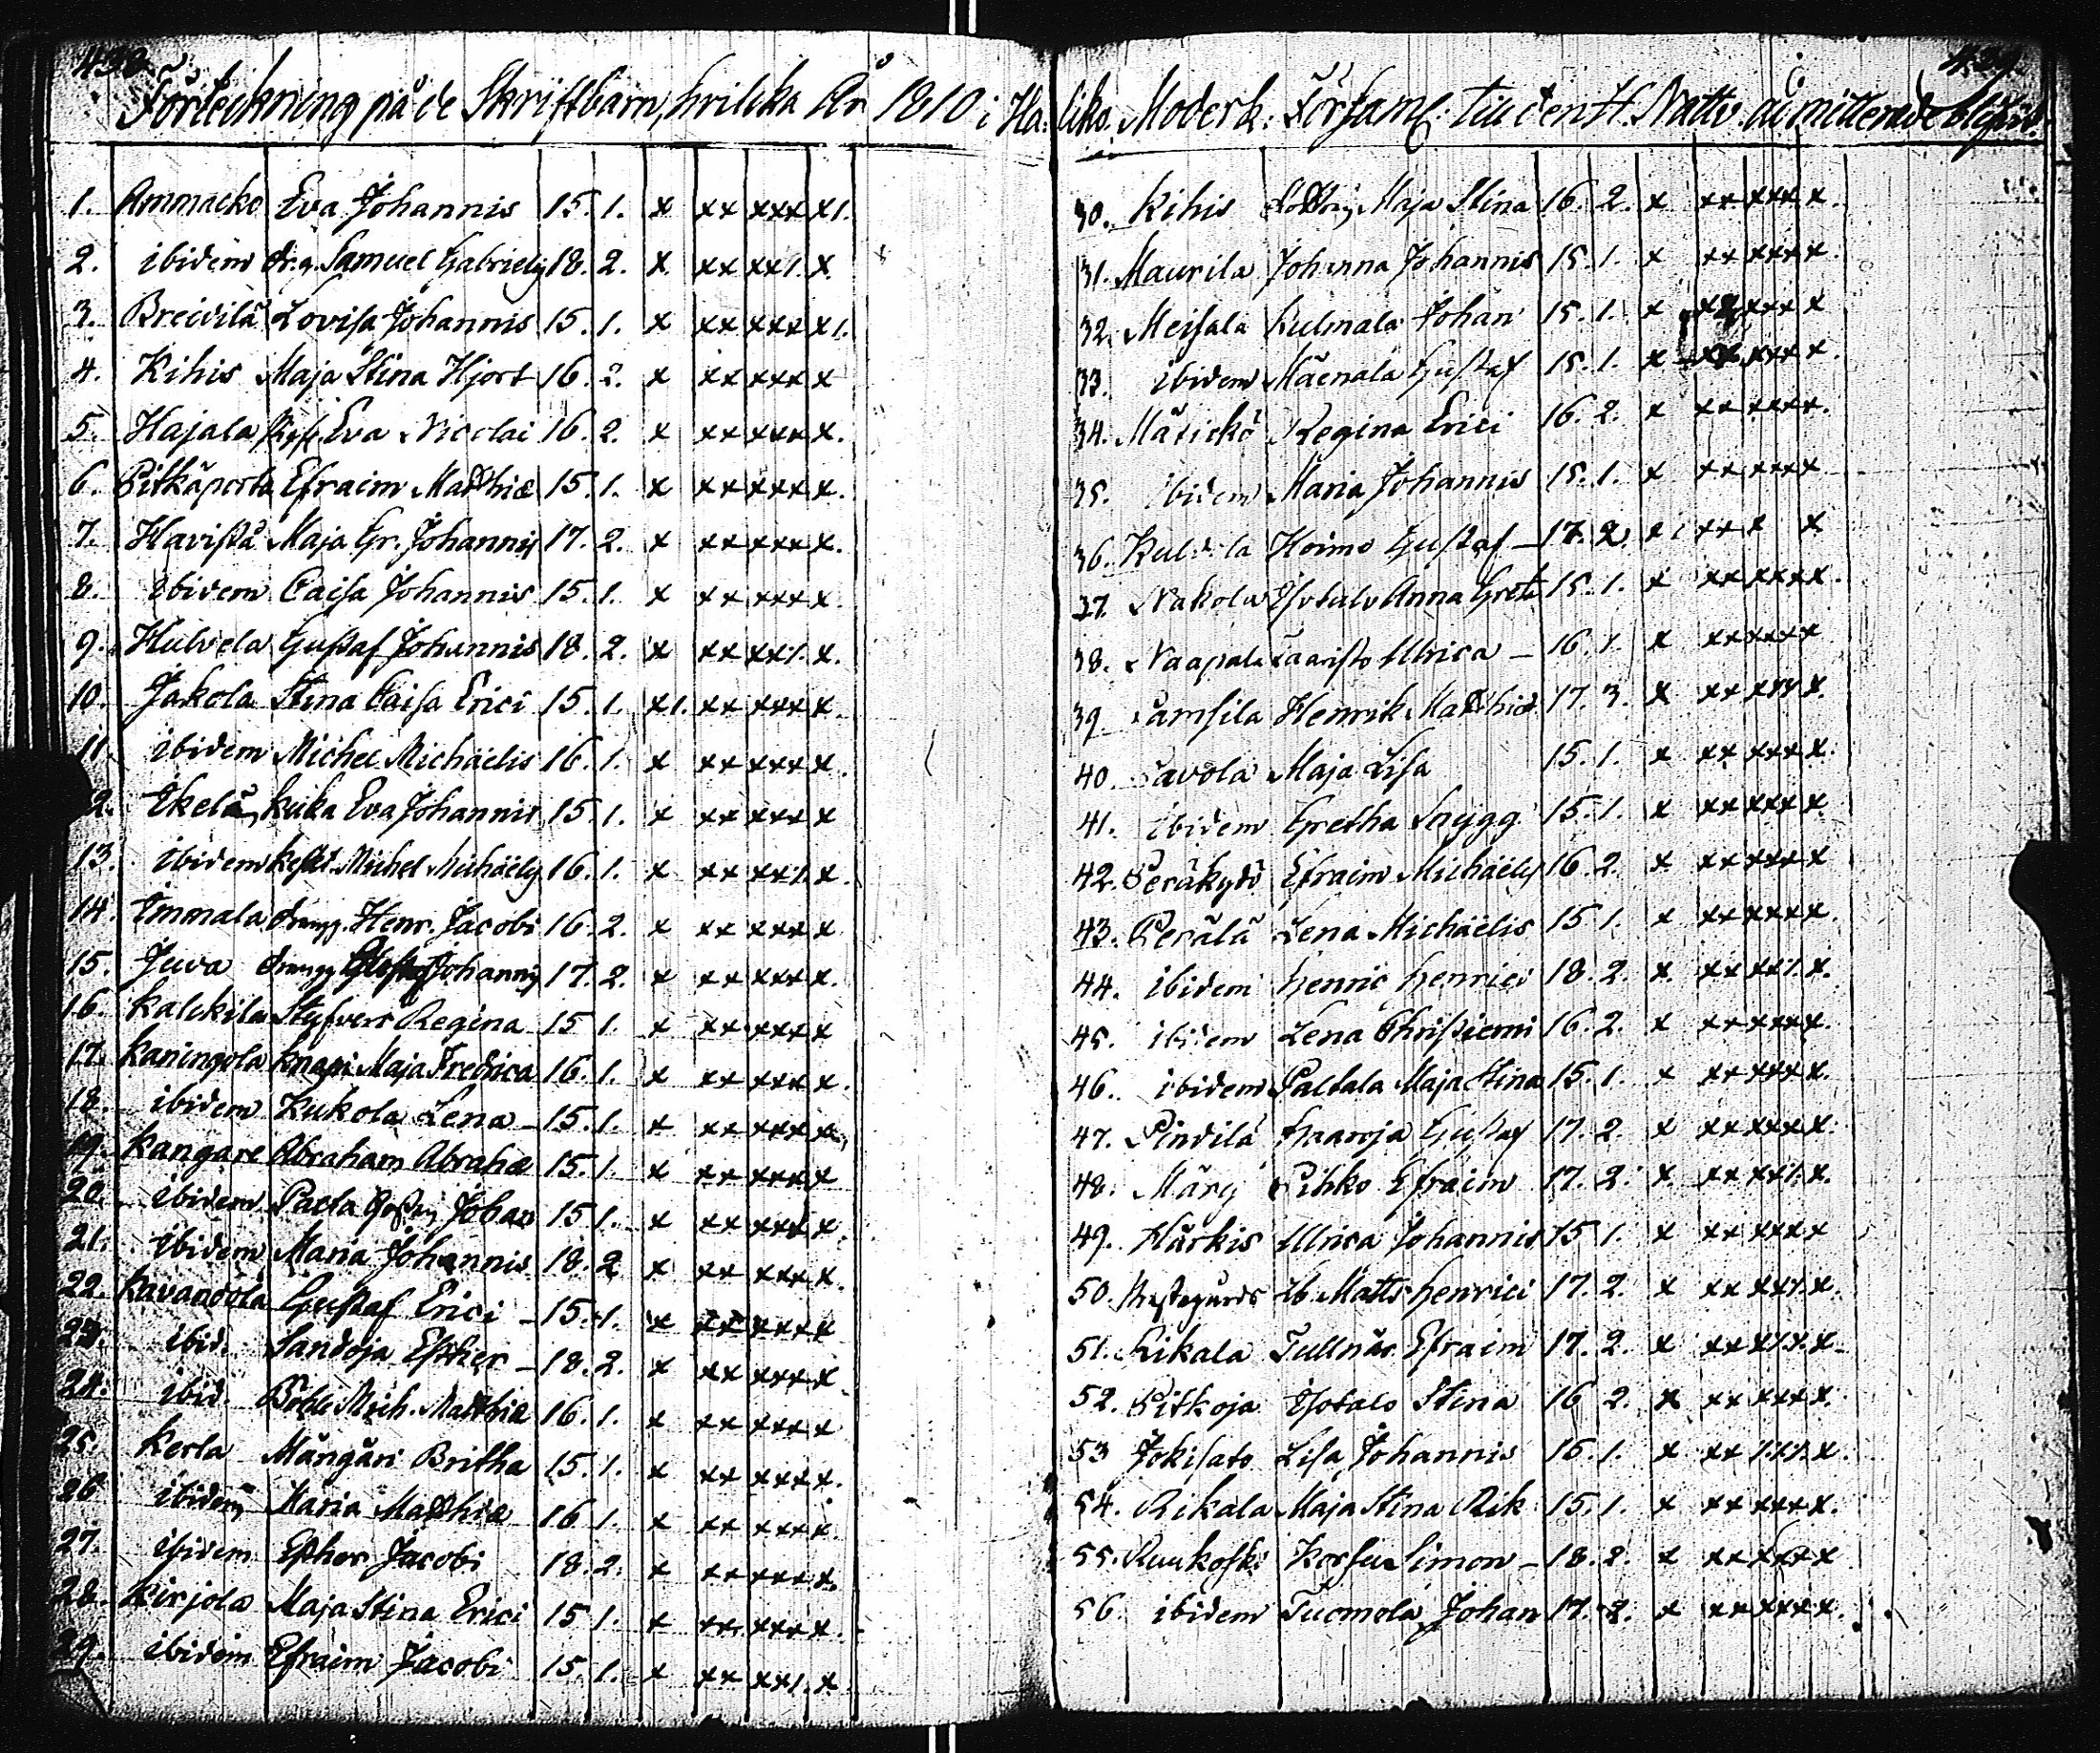 Förteckning på de Skriftbarn, hvilcka År 1810 i Ha-
1. Ammacko Eva Johannis 15. 1. x xx xxx x1.
2. ibidem dr.g. Samuel Gabriely 18. 2. x xx xx1. x
3. Breidilä Lovisa Johannis 15. 1. x xx xxx x1.
4. Kihis Maja Stina Hjort 16. 2. x xx xxx x
5. Hajala Eva Nicolai 16. 2. x xx xxx x.
6. Pitkäporta Efraim Matthiæ 15. 1. x xx xxx x.
7. Havistå Maja Gr. Johannis 17. 2. x xx xxx x.
8. ibidem Caisa Johannis 15. 1. x xx xxx x.
9. Hulvela Gustaf Johannis 18. 2. x xx xx1. x.
10. Jakola Stina Caisa Erici 15. 1. x1. xx xxx x.
11. ibidem Michel Michäelis 16. 1. x xx xxx x.
2. Ikelä, kuka Eva Johannis 15. 1. x xx xxx x
13. ibidem Michel Michäely 16. 1. x xx xx1. x.
14. Immala drengg. Henr. Jacobi 16. 2. x xx xxx x
15. Juva drengg Johannis 17. 2. x xx xxx x.
16. Kalckila Styfvers Regina 15 1. x xx xxx x
17. Kaningola Knapi Maja Fredrica 16. 1. x xx xxx x.
18. ibidem Kukola Lena 15. 1. x xx xxx x
19. Kangare Abraham Abrahæ 15. 1. x xx xxx x
20. ibidem Pacla Johan 15 1. x xx xxx x.
21. ibidem Maria Johannis 18. 2 x xx xxx x.
22. Kavandola Gustaf Erici 15. 1. x xx xxx x
23. ibid. Sandoja Esther 18. 2. x xx xxx x.
24. ibid. Böhle Mich. Matthiæ 16. 1. x xx xxx x
25. Kerla Mångåri Britha 15. 1. x xx xxx x.
26 ibidem Maria Matthiæ 16 1. x xx xxx x.
27. ibidem Esther Jacobi 18. 2. x xx xxx x.
28. Kirjola Maja Stina Erici 15 1. x xx xxx x.
29. ibidem Efraim Jacobi 15. 1. x xx xx1. x.
liko Moderk: Församl. till den H. Nattv. admitterade blifvit.
30. Kihis Maja Stina 16. 2. x xx xxx x.
31. Maurila Johanna Johannis 15. 1. x xx xxx x.
32. Meisala Kulmala Johan 15. 1. x xx xxx x
33. ibidem Mäenala Gustaf 15. 1. x xx xxx x.
34. Mäsickö Regina Erici 16. 2. x xx xxx x.
35. ibidem Maria Johannis 15. 1. x xx xxx x
36. Hoimo Gustaf 17. 2. x xx x x
37. Nakola Isotalo Anna Greta 15. 1. x xx xxx x.
38. Naapala Ulrica 16. 1. x xx xxx x
39. Henrik Matthiæ 17. 3. x xx xxx x.
40. Pavola Maja Lisa 15. 1. x xx xxx x.
41. ibidem Gretha Snygg 15. 1. x xx xxx x.
42. Peräkylä Efraim Michäely 16. 2. x xx xxx x
43. Perälä Lena Michäelis 15 1. x xx xxx x.
44. ibidem Henric Henrici 18. 2. x xx xx1. x.
45. ibidem Lena Christierni 16. 2. x xx xxx x.
46. ibidem Paltala Maja Stina 15. 1. x xx xxx x.
47. Pindilä Haaroja Gustaf 17. 2. x xx xxx x.
48. Märy Pihko Efraim 17. 2. x xx xx1. x.
49. Härkis Ulrica Johannis 15 1. x xx xxx x
50. Prestegårds ib. Matts Henrici 17. 2. x xx xx1. x.
51. Rikala Tullnär Efraim 17. 2. x xx x1.1. x.
52. Pitkoja Isotalo Stina 16 2. x xx xxx x.
53 Jokisato Lisa Johannis 15. 1. x xx 1.x1. x.
54. Rikala Maja Stina Rik 15. 1. x xx xxx x.
55. Ruukoski Korsu Simon 18. 2. x xx xxx x
56. ibidem Tuomola Johan 17. 2. x xx xxx x.